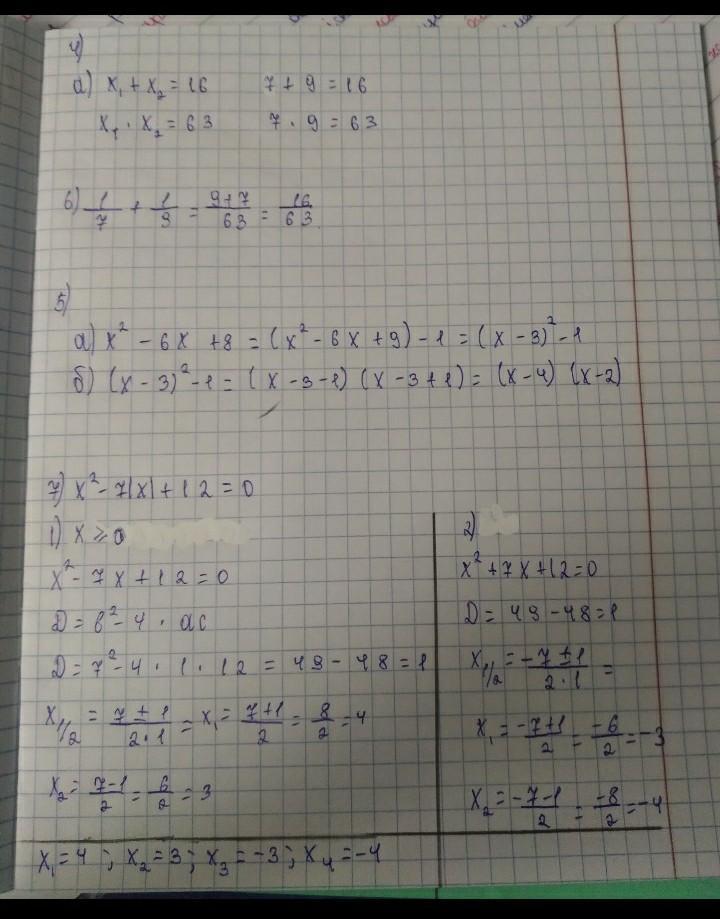 4)
а) x₁ + x₂ = 16 7 + 9 = 16
x₁ · x₂ = 63 7 · 9 = 63
б) 1/7 + 1/9 = (9+7)/63 = 16/63
5)
а) x² - 6x + 8 = (x² - 6x + 9) - 1 = (x - 3)² - 1
б) (x - 3)² - 1 = (x - 3 - 1) (x - 3 + 1) = (x - 4) (x - 2)
7) x² - 7|x| + 12 = 0
1) x ≥ 0
x² - 7x + 12 = 0
D = b² - 4 · ac
D = 7² - 4 · 1 · 12 = 49 - 48 = 1
x₁/₂ = (7 ± 1)/(2·1) = x₁ = (7+1)/2 = 8/2 = 4
x₂ = (7-1)/2 = 6/2 = 3
2)
x² + 7x + 12 = 0
D = 49 - 48 = 1
x₁/₂ = (-7 ± 1)/(2·1) =
x₁ = (-7+1)/2 = -6/2 = -3
x₂ = (-7-1)/2 = -8/2 = -4
x₁ = 4 ; x₂ = 3 ; x₃ = -3 ; x₄ = -4